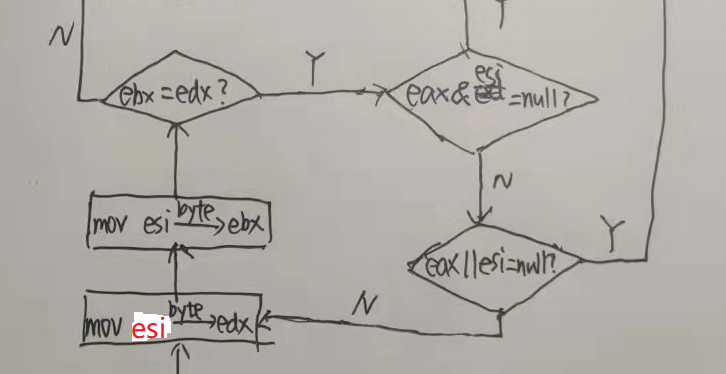 N
Y
ebx=edx?
Y
esi
eax& =null?
N
mov esi byte ebx
eax||esi=null?
Y
N
mov esi byte edx